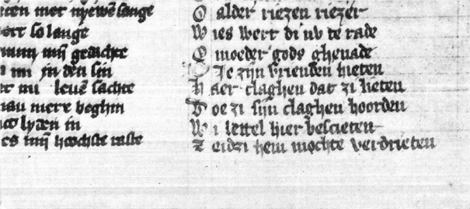 met nyewe sange
so lange
mijn gedachte
mi in den sin
mi leue sachte
mere beghin
lyden in
es mijn hoochste raste
O alder riezen riezer
Wies wert di uv te rade
O moeder gods ghenade
Die zijn vrienden hieten
Haer claghen dat zi lieten
Hoe zi sijn claghen hoorden
Wi lettel hier bescieten
Zeidzi hem mochte verdrieten